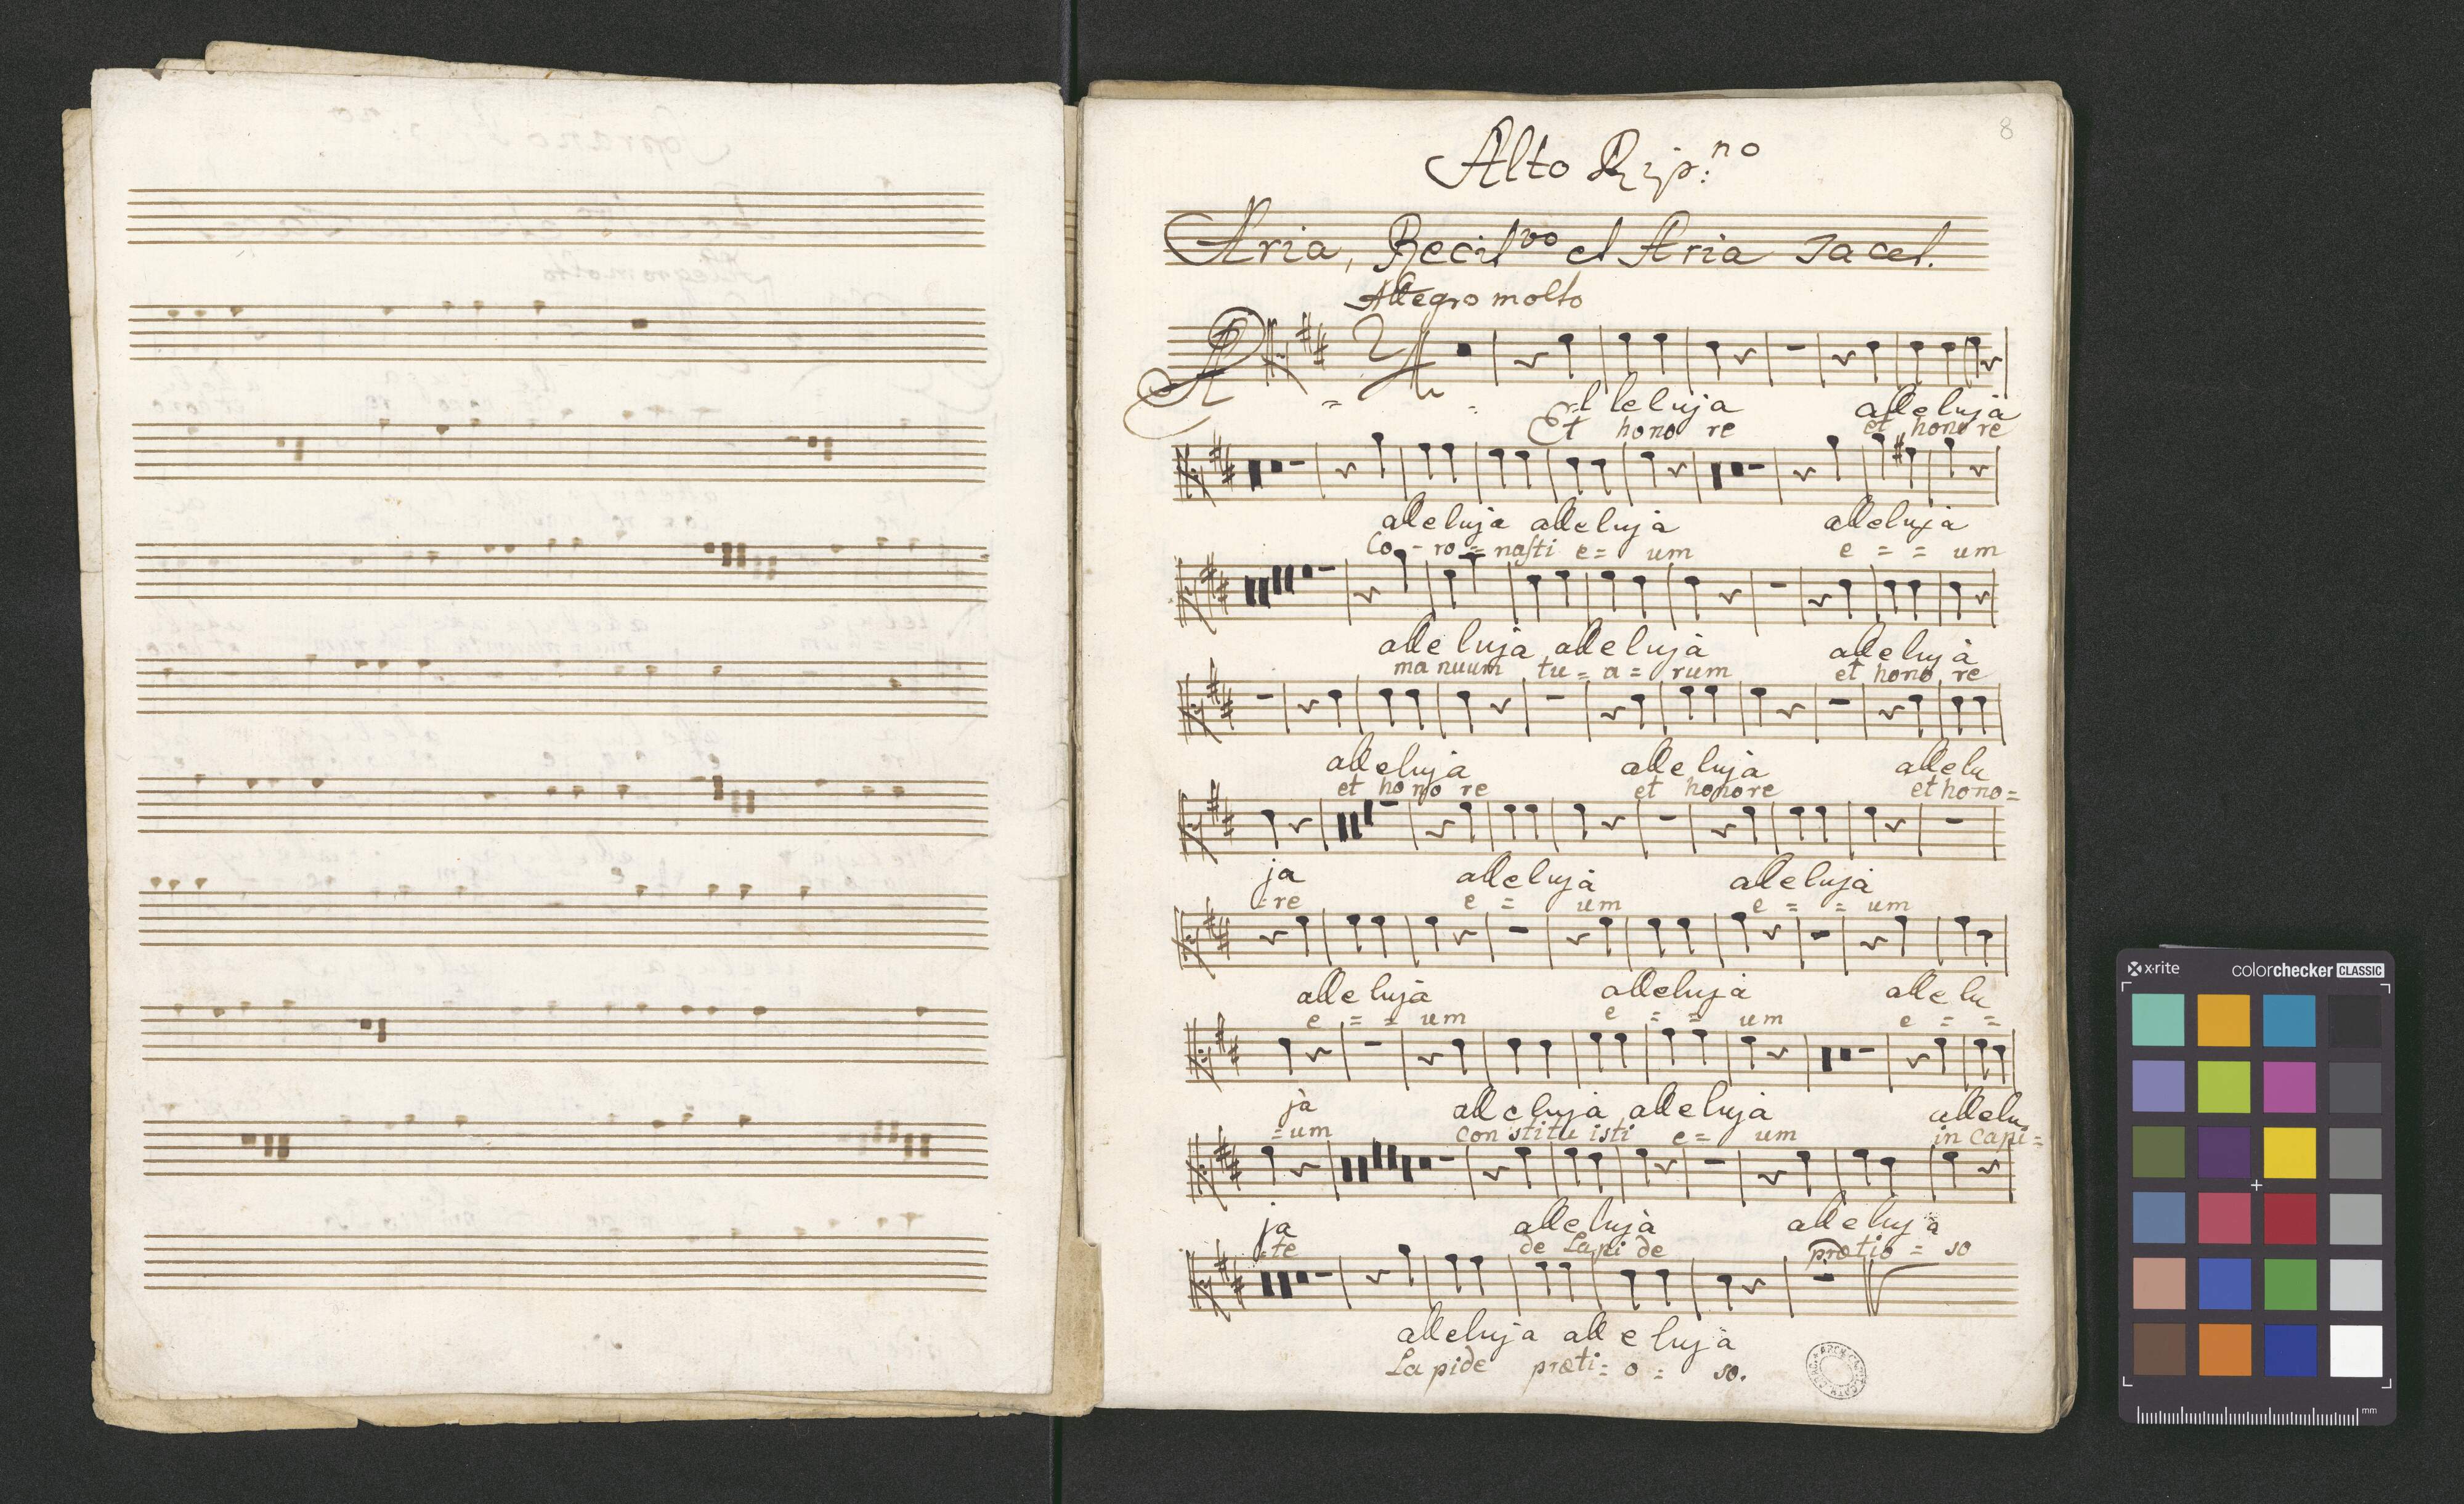 8
Alto Rip:no
Aria, Recitvo et Aria Tacet.
Allegro molto
Al leluja alleluja
Et hono re et hono re
alleluja alleluja alleluja
Co - ro = nasti e = um e = = um
alleluja alleluja alleluja
manuum tu = a = rum et hono re
alleluja alleluja allelu
et hono re et honore et hono =
ja alleluja alleluja
=re e = um e = = um
alleluja alleluja allelu
e = = um e = = um e = =
ja alleluja alleluja allelu
=um constitu isti e = um in capi =
ja alleluja alleluja
=te de Lapi de prætio = so
alleluja alleluja
Lapide præti = o = so.
x·rite colorchecker CLASSIC
mm